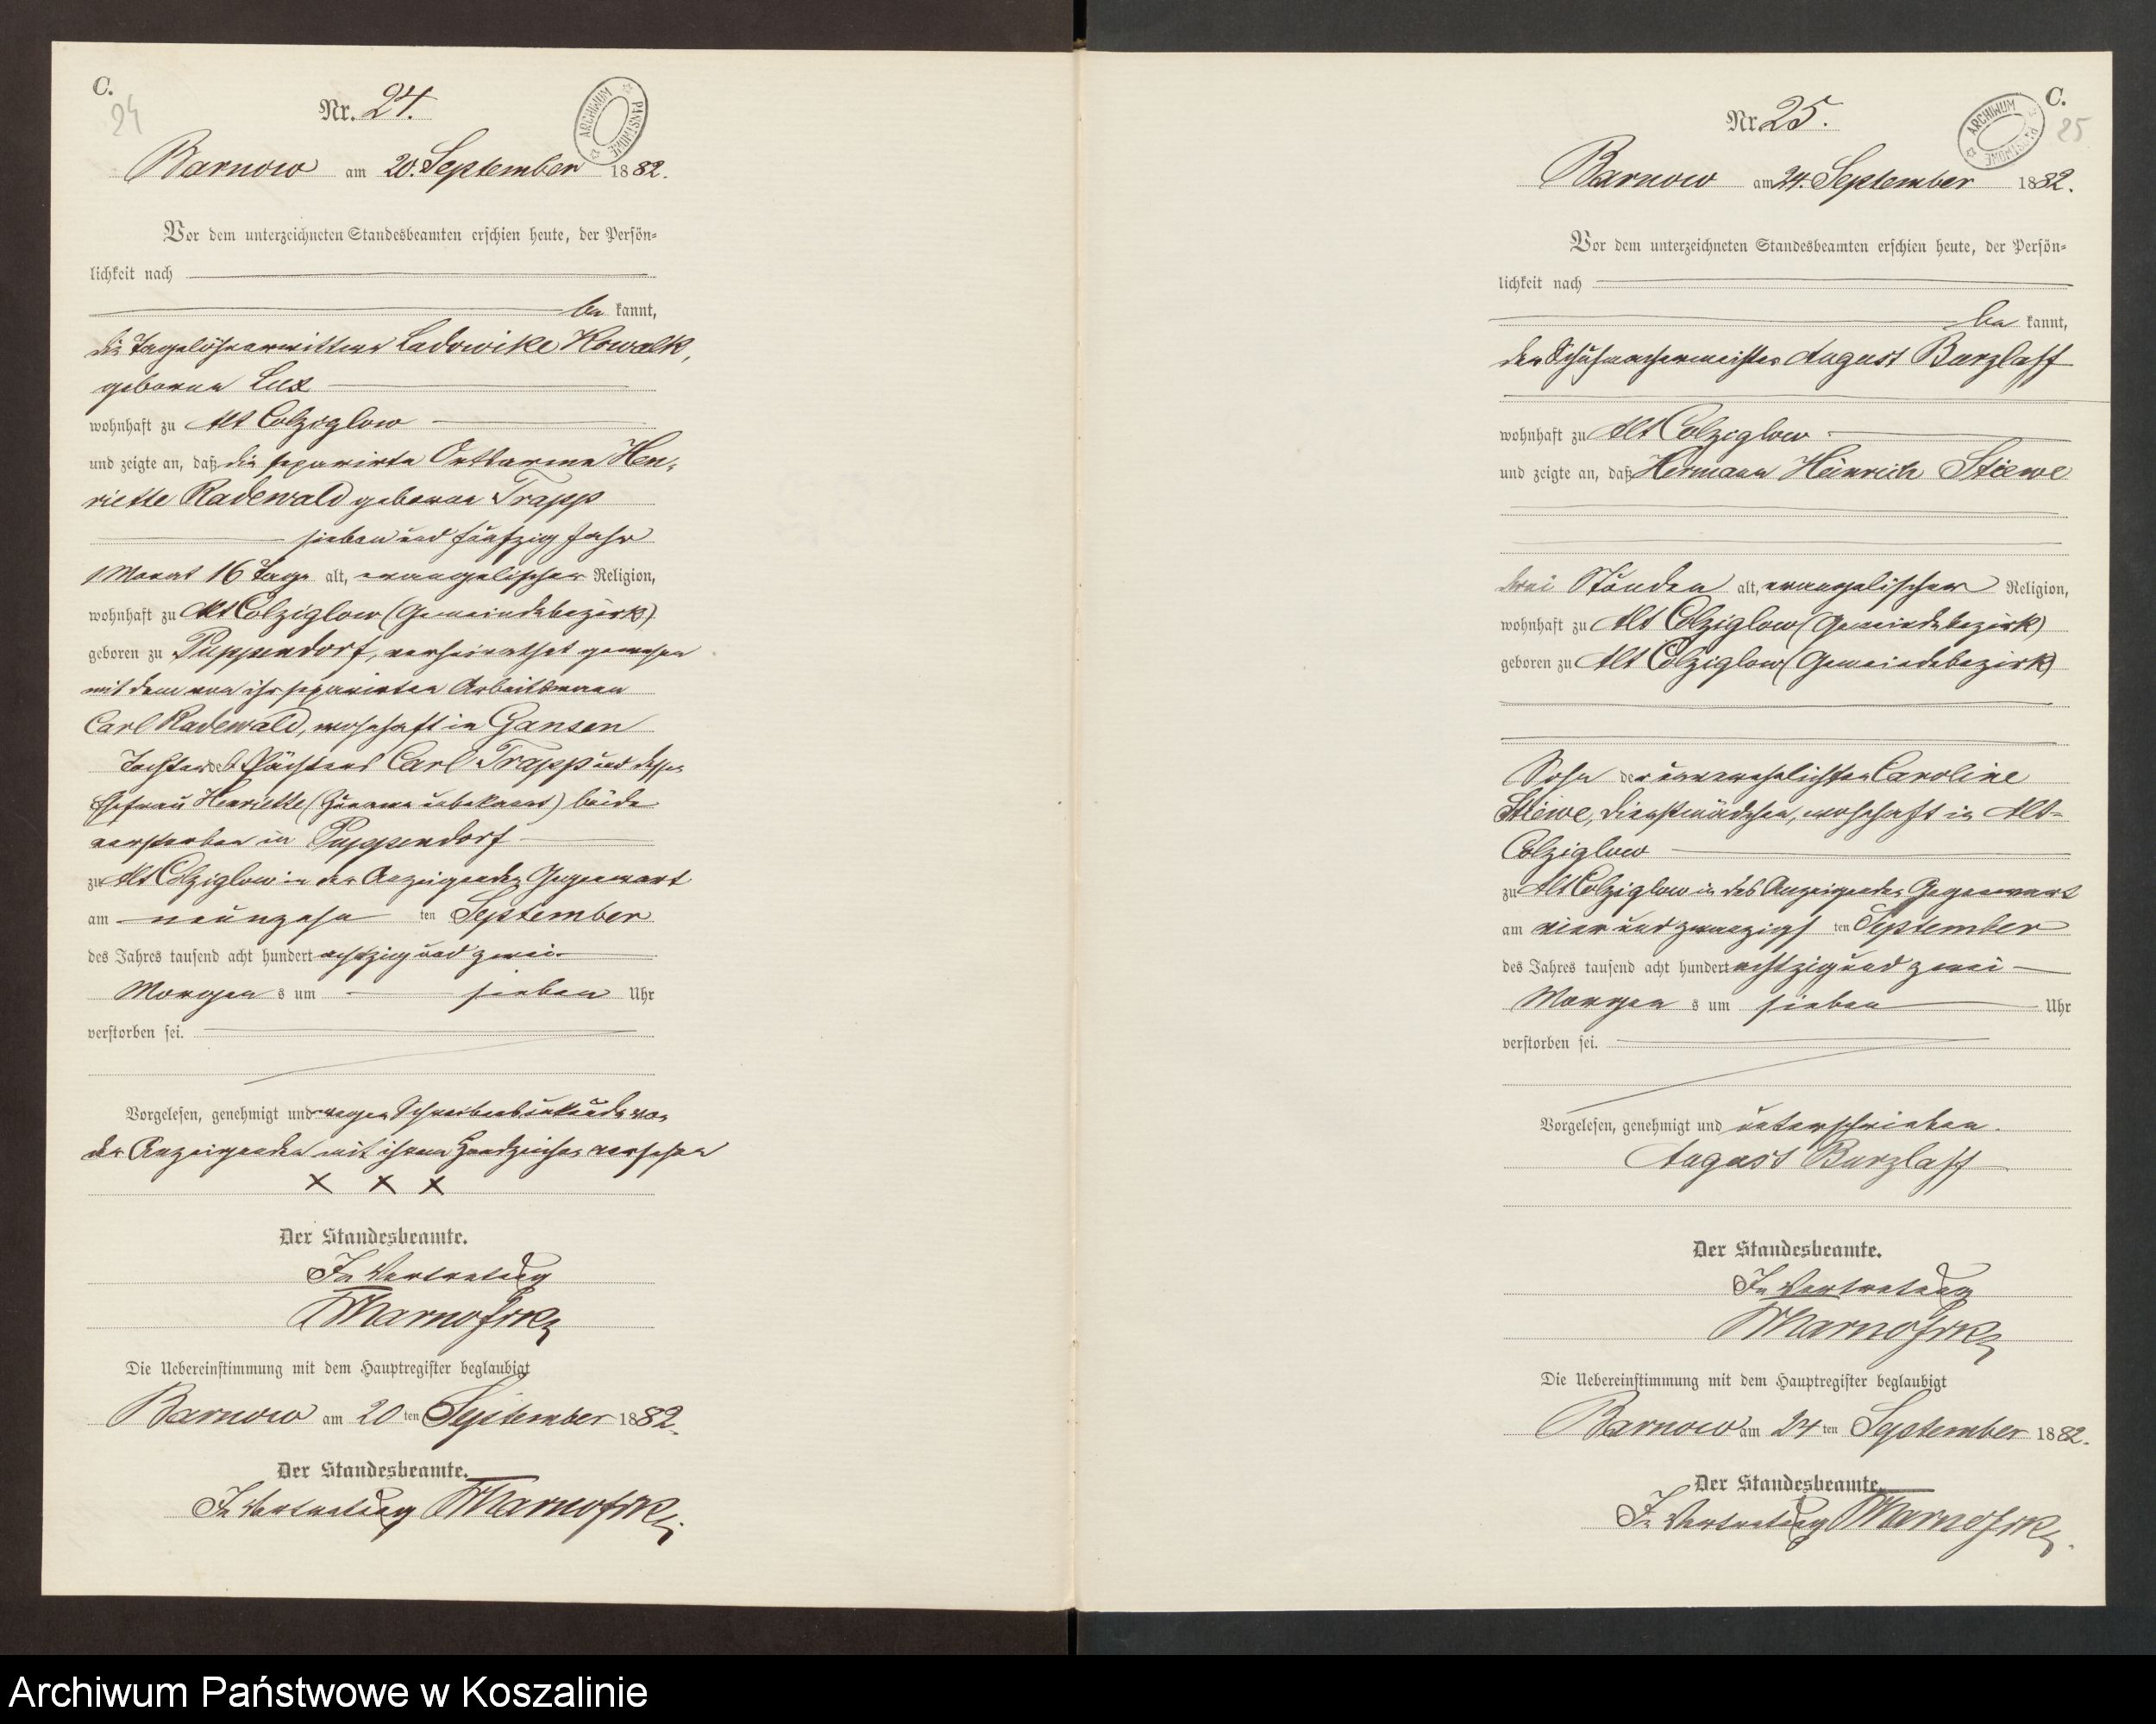 C.
24
Nr. 24.
ARCHIWUM PAŃSTWOWE
Barnow am 20. September 1882.
Vor dem unterzeichneten Standesbeamten erschien heute, der Persön-
lichkeit nach
be kannt,
die Tagelöhnerwittwe Ladowike Kowalk,
geborene Lux
wohnhaft zu Alt Colziglow
und zeigte an, daß die separirte Ortsarme Hen-
riette Radewald geborne Trapp
sieben und fünfzig Jahr
1 Monat 16 Tage alt, evangelischer Religion,
wohnhaft zu Alt Colziglow (Gemeindebezirk)
geboren zu Puppendorf, verheirathet gewesen
mit dem von ihr separirten Arbeitsmann
Carl Radewald, wohnhaft in Gansen
Tochter des Pächters Carl Trapp und dessen
Ehefrau Henriette (Zuname unbekannt) beide
verstorben in Puppendorf
zu Alt Colziglow in der Anzeigenden Gegenwart
am neunzehn ten September
des Jahres tausend acht hundert achtzig und zwei
Morgen s um sieben Uhr
verstorben sei.
Vorgelesen, genehmigt und wegen Schreibensunkunde von
der Anzeigenden mit ihrem Handzeichen versehen
x x x
Der Standesbeamte.
In Vertretung
Die Uebereinstimmung mit dem Hauptregister beglaubigt
Barnow am 20 ten September 1882.
Der Standesbeamte.
In Vertretung
C.
25
Nr. 25.
ARCHIWUM PAŃSTWOWE
Barnow am 24. September 1882.
Vor dem unterzeichneten Standesbeamten erschien heute, der Persön-
lichkeit nach
be kannt,
der Schuhmachermeister August Barzlaff
wohnhaft zu Alt Colziglow
und zeigte an, daß Hermann Heinrich Stiewe
drei Stunden alt, evangelischer Religion,
wohnhaft zu Alt Colziglow (Gemeindebezirk)
geboren zu Alt Colziglow (Gemeindebezirk)
Sohn der unverehelichten Caroline
Stiewe, Dienstmädchen, wohnhaft in Alt-
Colziglow
zu Alt Colziglow in des Anzeigenden Gegenwart
am vier und zwanzigs ten September
des Jahres tausend acht hundert achtzig und zwei
Morgen s um sieben Uhr
verstorben sei.
Vorgelesen, genehmigt und unterschrieben.
August Barzlaff
Der Standesbeamte.
In Vertretung
Die Uebereinstimmung mit dem Hauptregister beglaubigt
Barnow am 24 ten September 1882.
Der Standesbeamte.
In Vertretung
Archiwum Państwowe w Koszalinie